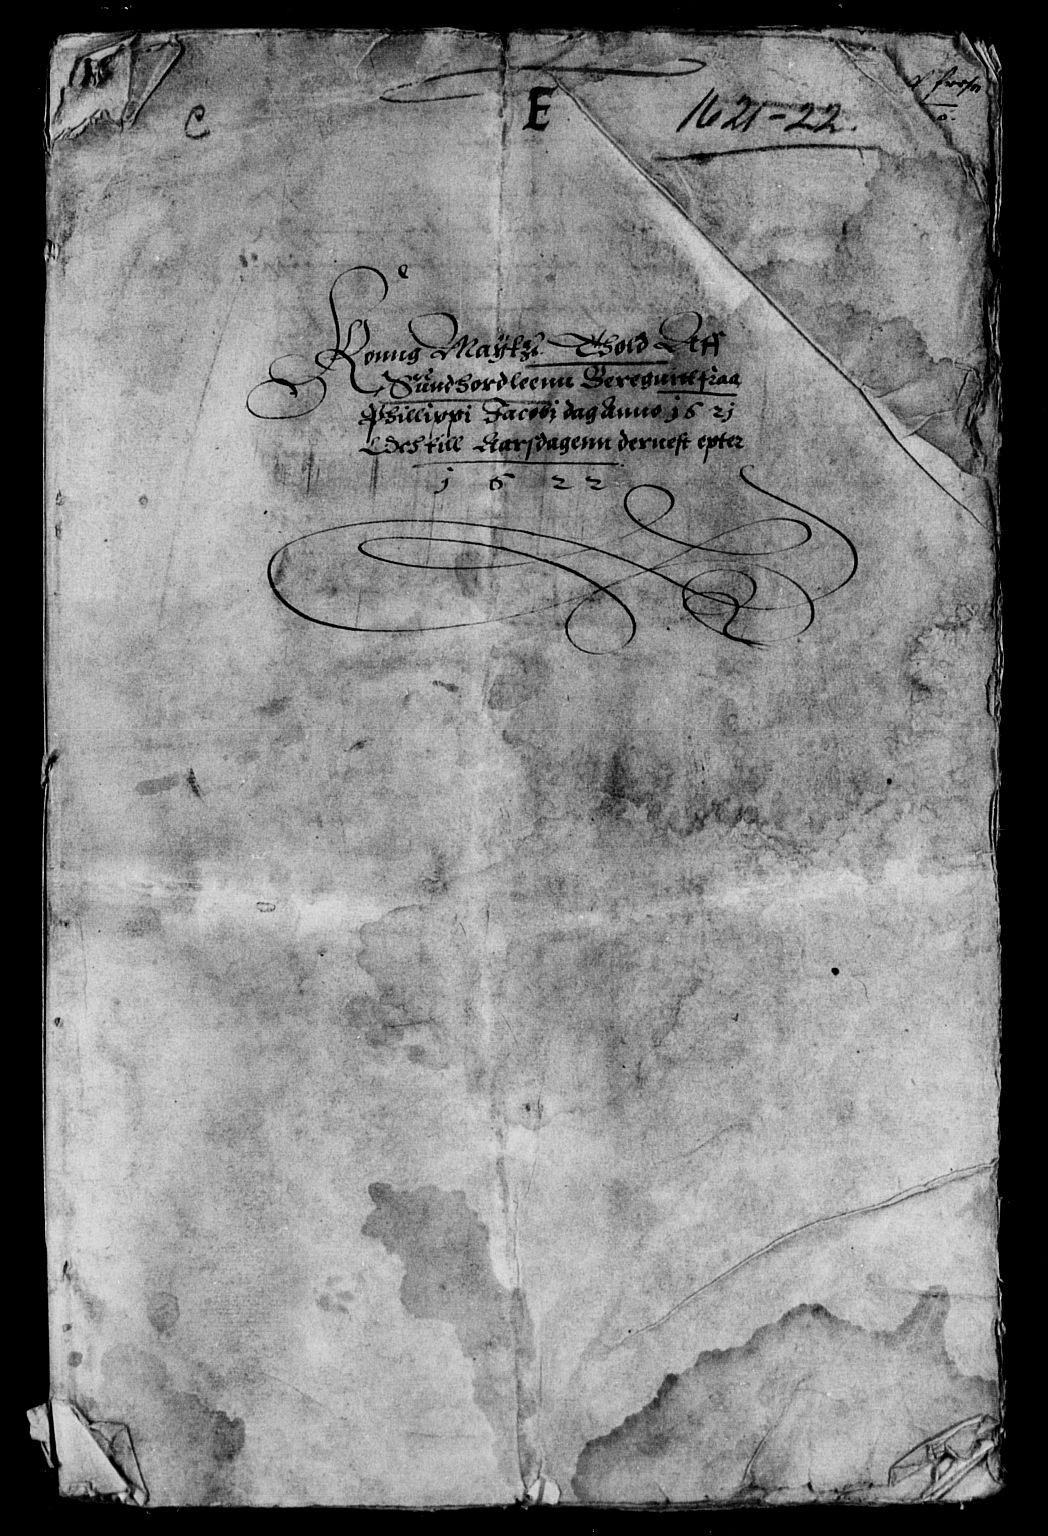 C
E
1621-22.
Konng Maÿtz. Thold Aff
Sundhordleenn Beregunt fraa
Phillippi Jacobj dag Anno 1621
Och till Aarsdagenn dernest epter
1622